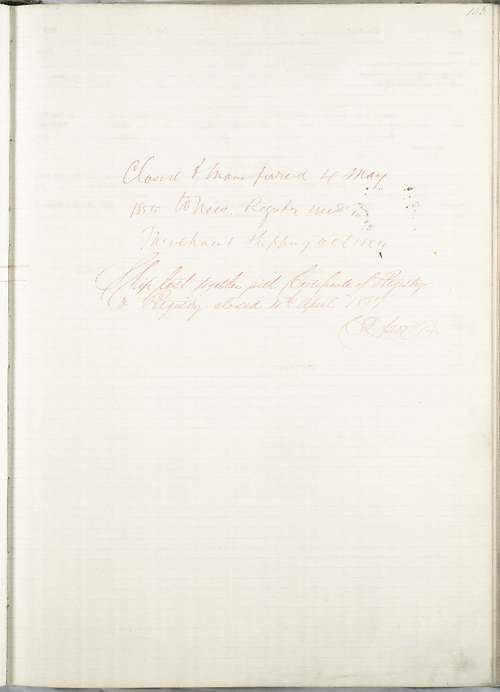 113
Closed & transferred 4 May
1855 to New Register under
Merchant Shipping Act 1854
Ship lost together with Certificate of Registry
& Registry closed 4th April